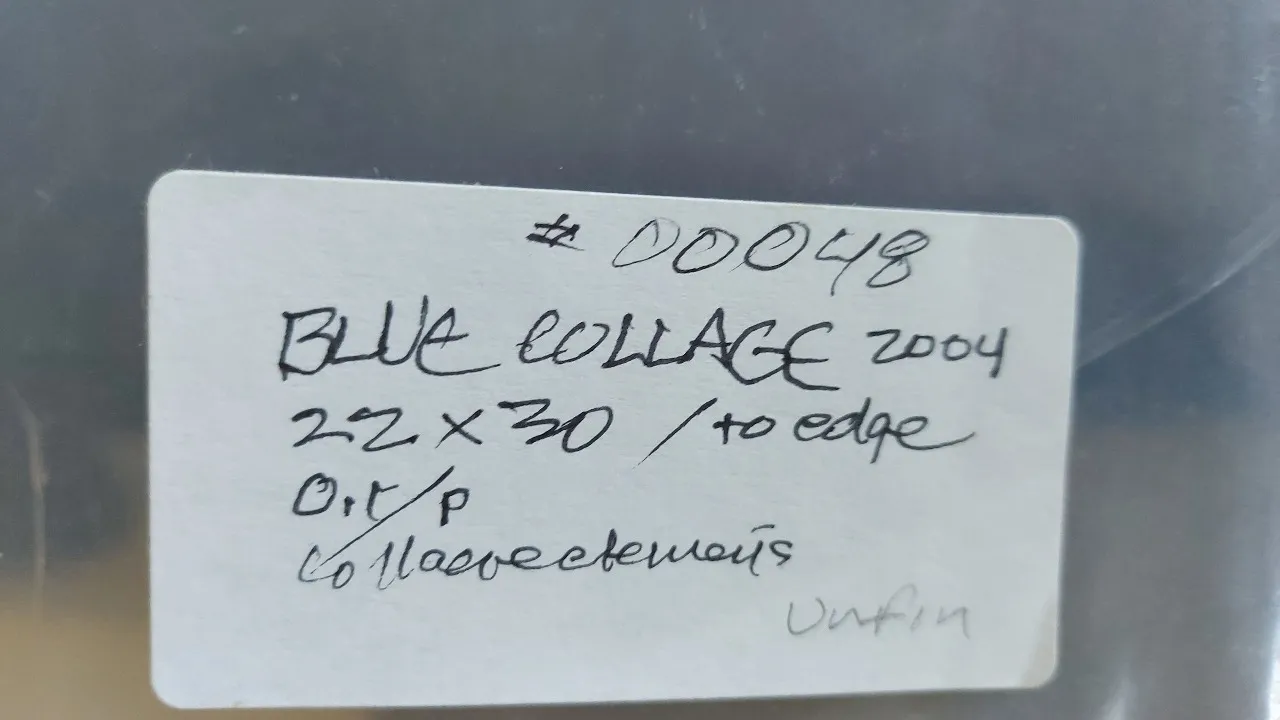 # 00048
BLUE COLLAGE 2004
22 x 30 / to edge
Unfin